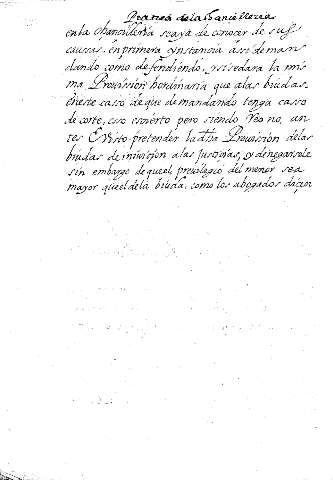 Pratica de la Chancilleria
en la Chancilleria seaya de conocer de sus
causas, en primera ynstancia assi deman
dando como defendiendo, y se le dara la mis
ma Provission hordinaria que alas biudas,
eneste casso de que demandando tenga casso
de corte, esso escierto pero siendo Reo no, an
tes E visto pretender la dha Provission delas
biudas de iniuicion alas Justiçias, y denegarsele
sin embargo de que el previlegio del menor sea
mayor que el dela biuda, como los abogados diçen